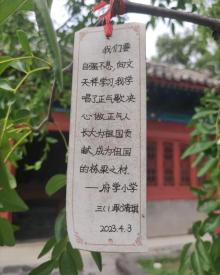 我们要
自强不息,向文
天祥学习,我学
唱了正气歌,决
心做正气人
长大为祖国贡
献,成为祖国
的栋梁之材.
——府学小学
三(1)
2023.4.3